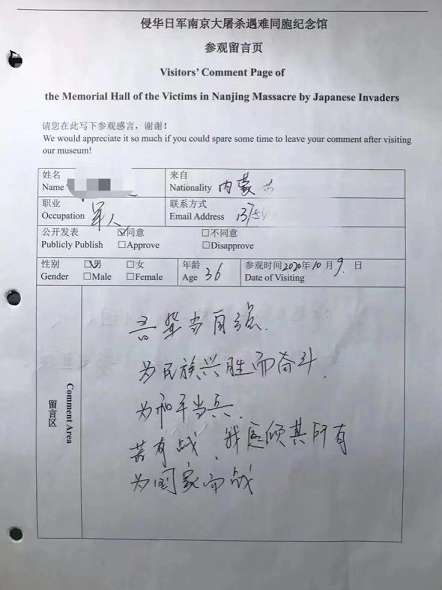 侵华日军南京大屠杀遇难同胞纪念馆
参观留言页
Visitors' Comment Page of
the Memorial Hall of the Victims in Nanjing Massacre by Japanese Invaders
请您在此写下参观感言，谢谢！
We would appreciate it so much if you could spare some time to leave your comment after visiting
our museum!
姓名
Name
来自
Nationality 内蒙古
职业
Occupation 军人
联系方式
Email Address
公开发表 ☑同意 □不同意
Publicly Publish □Approve □Disapprove
性别 ☑男 □女
Gender □Male □Female
年龄
Age 36
参观时间 2020年10月9日
Date of Visiting
留言区
Comment Area
吾辈当自强.
为民族兴胜而奋斗.
为和平当兵.
若有战，我愿倾其所有
为国家而战